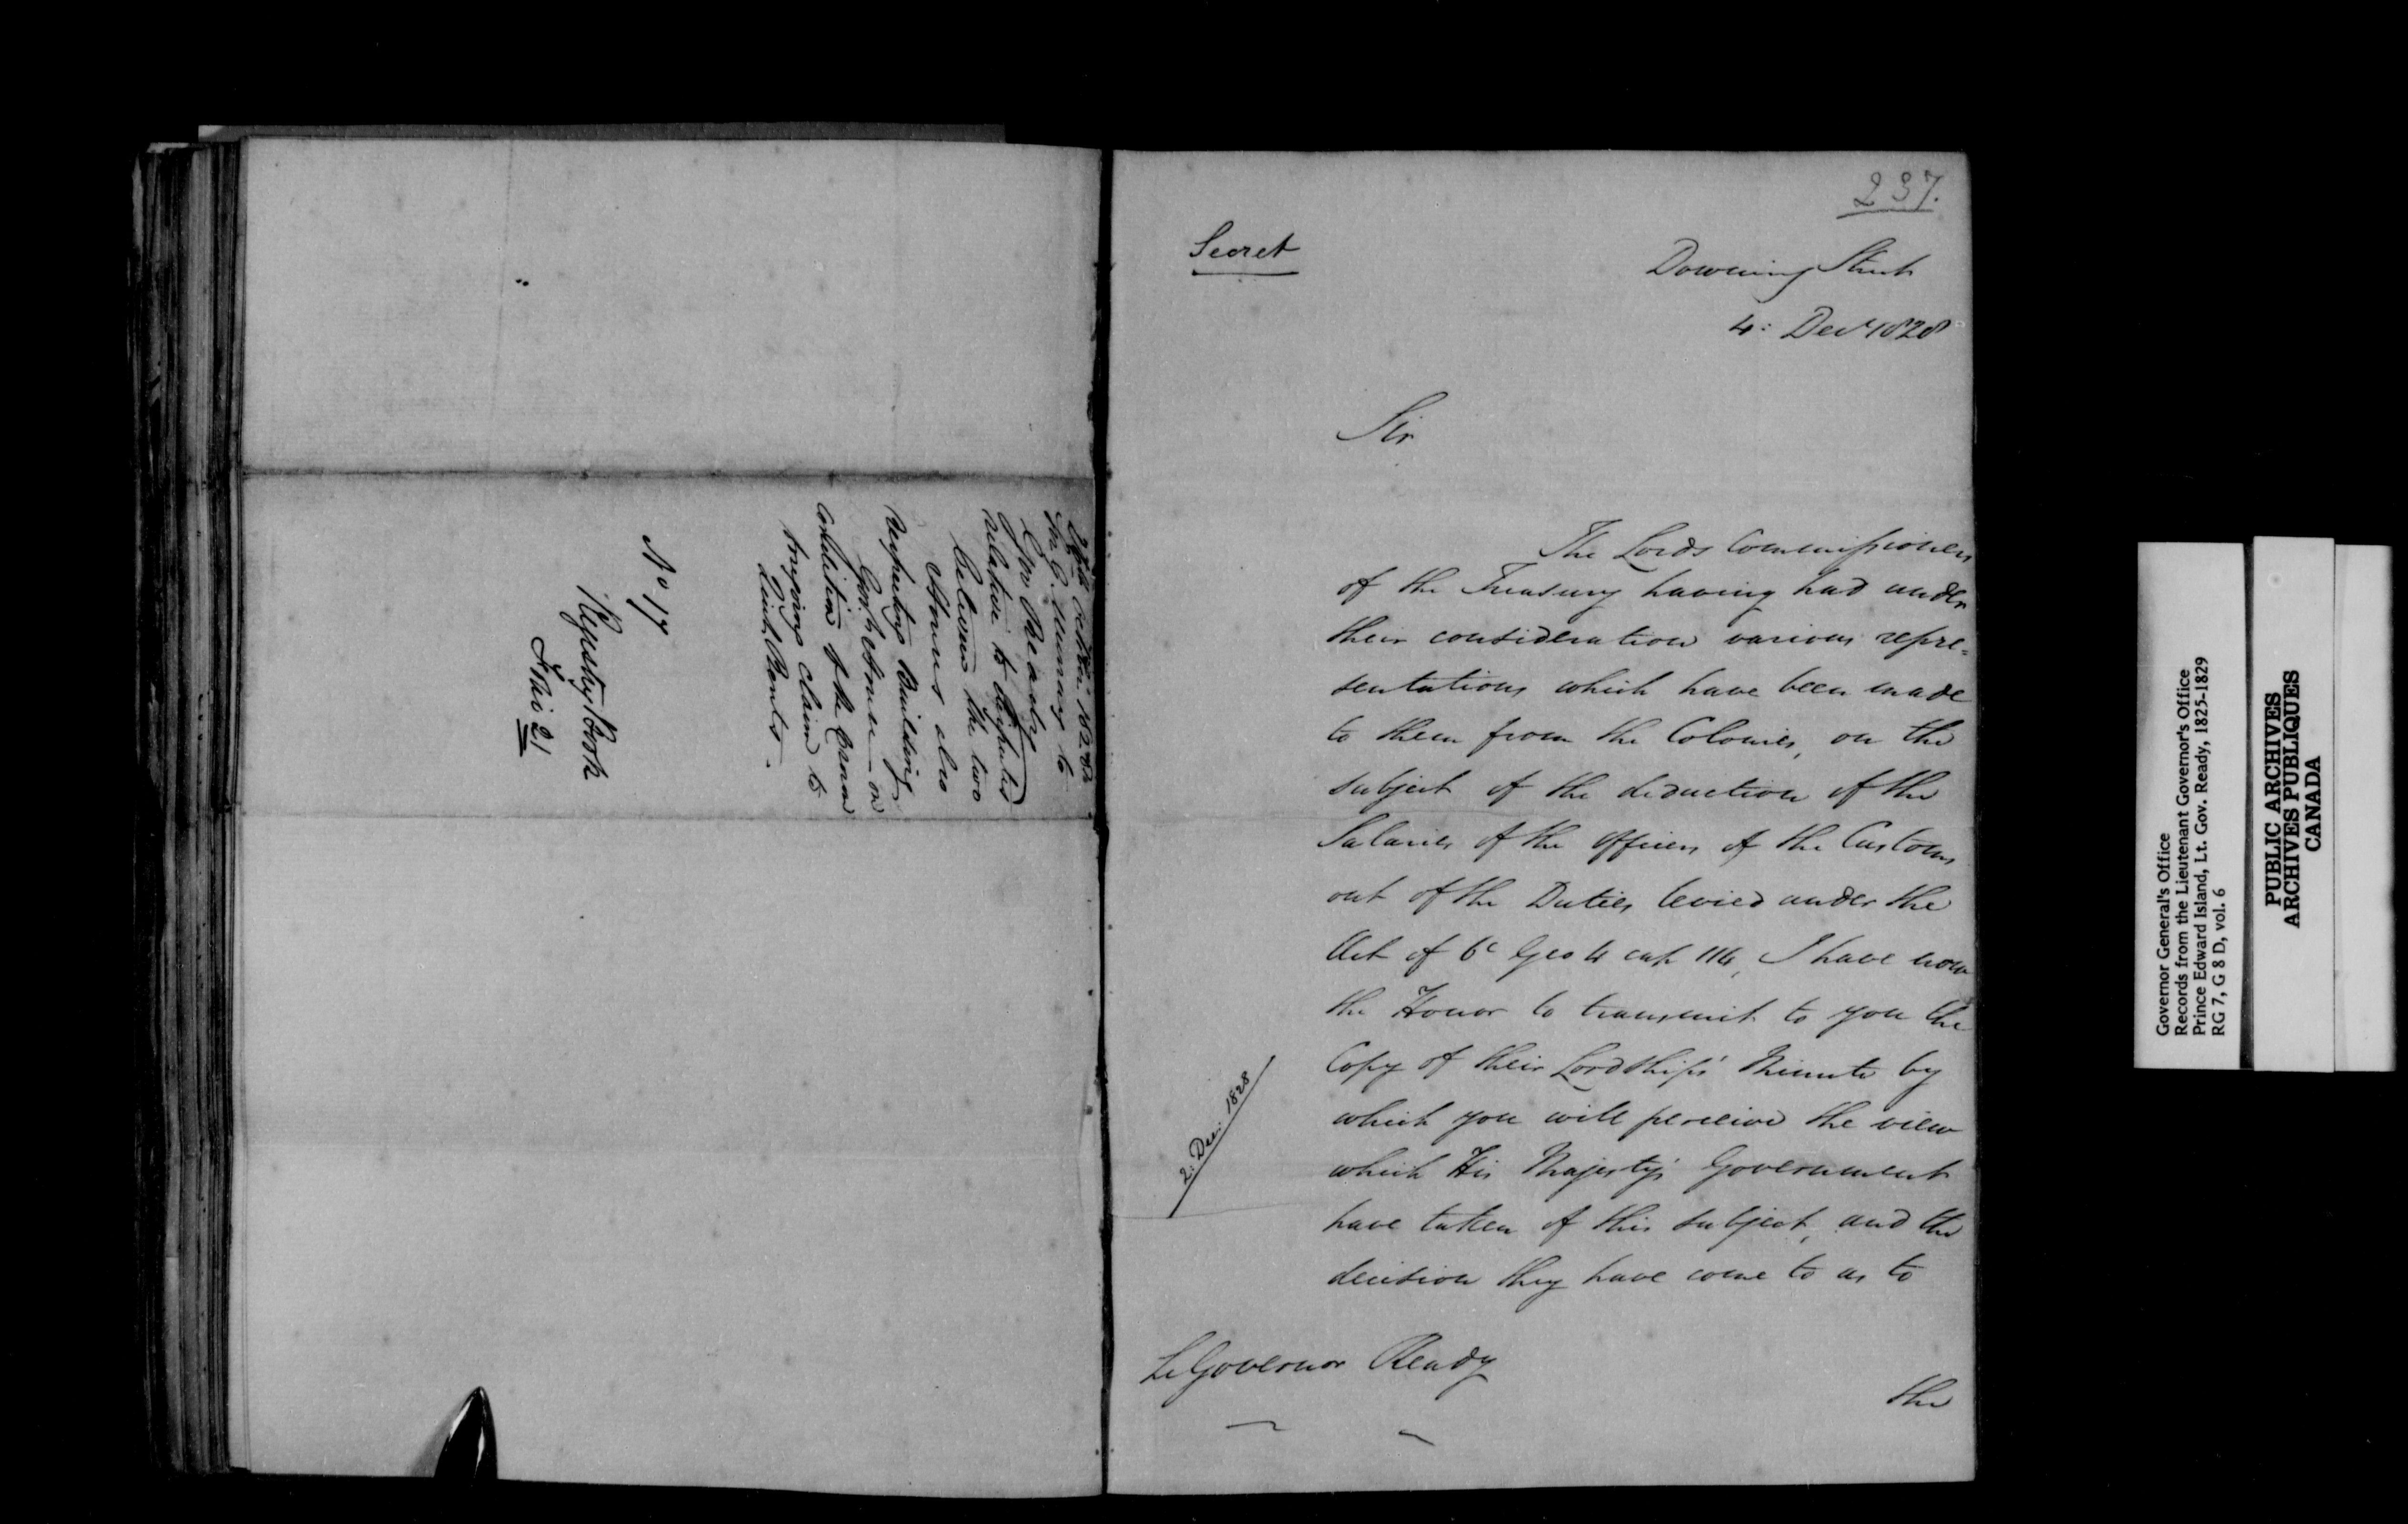 Sir G. Murray to
Govr Ready
relative to disputes
between the two
Houses also
respecting Building
Govt House — on
Constitution of the Crown
buying claim to
Quit Rents.
No 17
Registry Book
No 21
237.
Secret
Downing Street
4: Decr 1828
Sir
The Lords Commissioners
of the Treasury having had under
their consideration various repre=
sentations which have been made
to them from the Colonies, on the
subject of the deduction of the
Salaries of the Officers of the Customs
out of the Duties levied under the
Act of 6th Geo 4 cap 114, I have now
the Honor to transmit to you the
Copy of their Lordships' Minute by
which you will perceive the view
which His Majesty's Government
have taken of this subject, and the
decision they have come to as to
2: Dec: 1828
Lt Governor Ready
the
Governor General's Office
Records from the Lieutenant Governor's Office
Prince Edward Island, Lt. Gov. Ready, 1825-1829
RG 7, G 8 D, vol. 6
PUBLIC ARCHIVES
ARCHIVES PUBLIQUES
CANADA